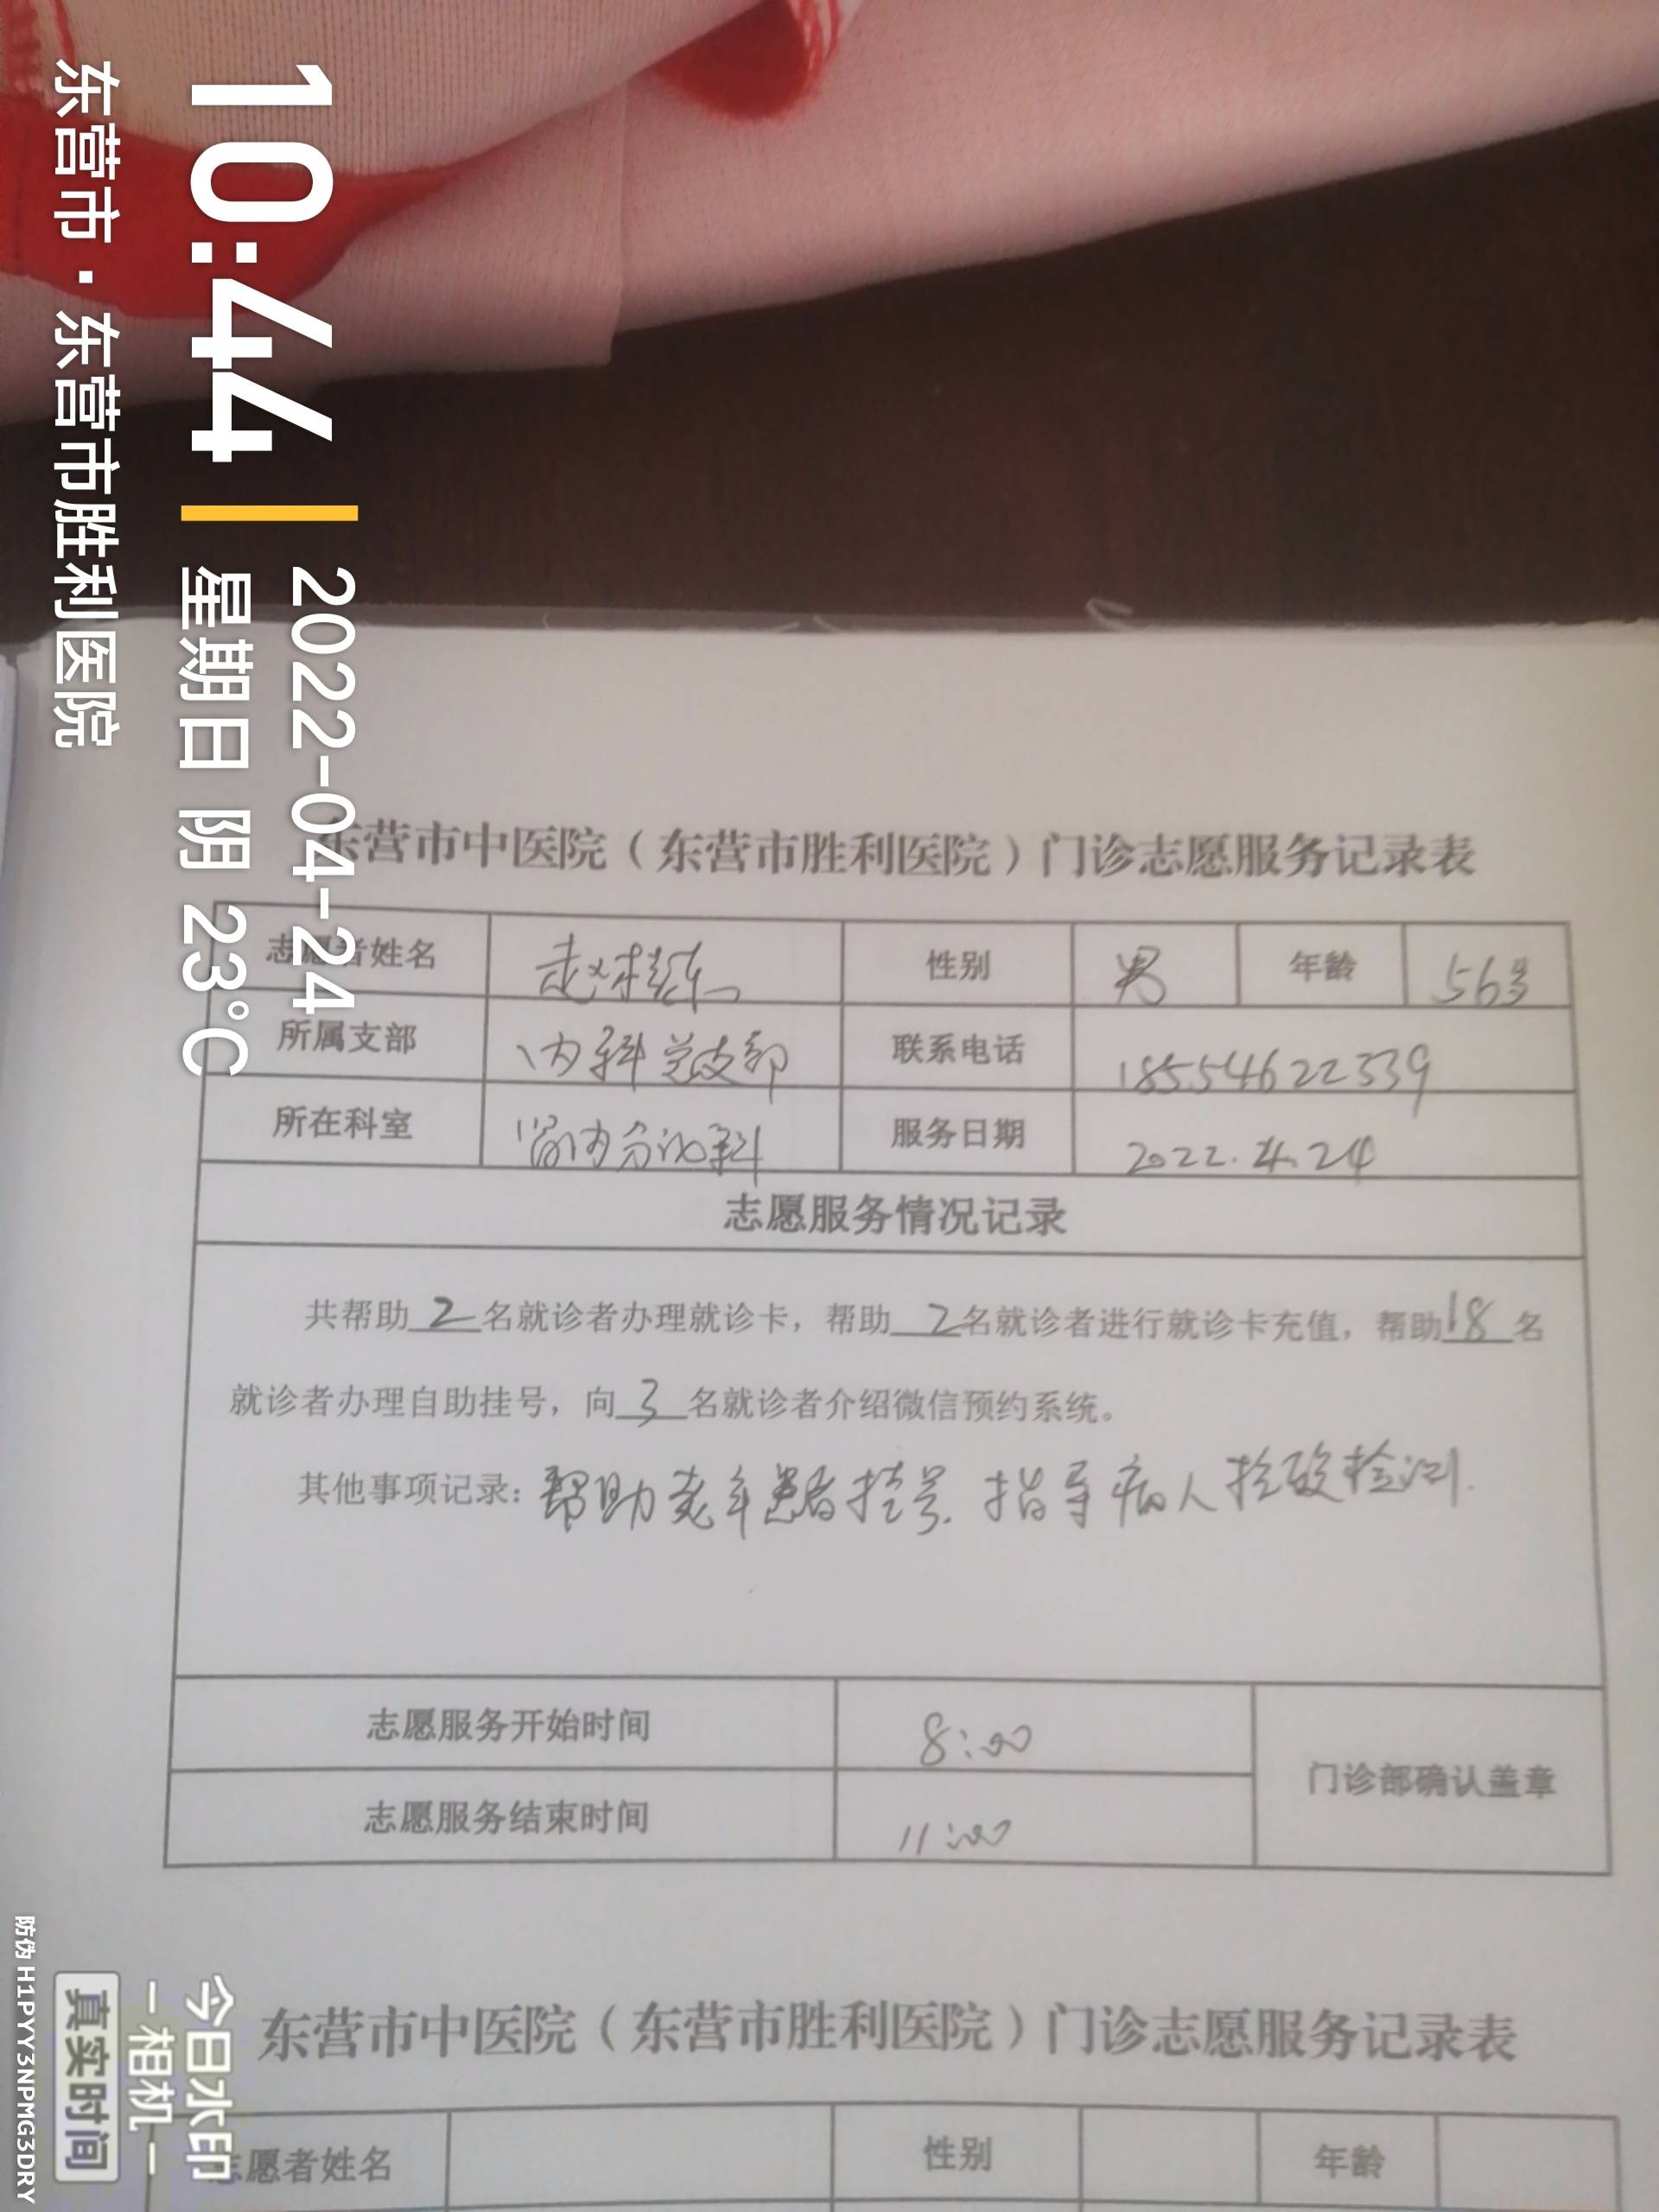 10:44
2022-04-24
星期日 阴 23°C
东营市·东营市胜利医院
东营市中医院（东营市胜利医院）门诊志愿服务记录表
志愿者姓名 赵 性别 男 年龄 56岁
所属支部 内科党支部 联系电话 18554622339
所在科室 肾内分泌科 服务日期 2022.4.24
志愿服务情况记录
共帮助2名就诊者办理就诊卡，帮助2名就诊者进行就诊卡充值，帮助18名
就诊者办理自助挂号，向3名就诊者介绍微信预约系统。
其他事项记录：帮助老年患者挂号.指导病人核酸检测.
志愿服务开始时间 8:00
门诊部确认盖章
志愿服务结束时间 11:00
东营市中医院（东营市胜利医院）门诊志愿服务记录表
志愿者姓名 性别 年龄
今日水印
相机
真实时间
防伪 H1PYYY3NPMG3DRY